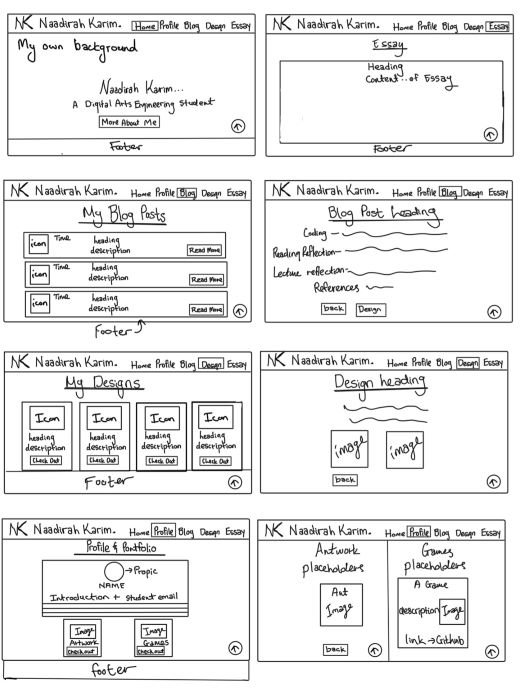 NK Naadirah Karim. Home Profile Blog Design Essay
My own background
Naadirah Karim...
A Digital Arts Engineering Student
More About Me
Footer
NK Naadirah Karim. Home Profile Blog Design Essay
Essay
Heading
Content..of Essay
Footer
NK Naadirah Karim. Home Profile Blog Design Essay
My Blog Posts
icon Time heading
description Read More
icon Time heading
description Read More
icon Time heading
description Read More
Footer
NK Naadirah Karim. Home Profile Blog Design Essay
Blog Post heading
Coding
Reading Reflection
Lecture reflection
References
back Design
NK Naadirah Karim. Home Profile Blog Design Essay
My Designs
Icon Icon Icon Icon
heading heading heading heading
description description description description
Check Out Check Out Check Out Check Out
Footer
NK Naadirah Karim. Home Profile Blog Design Essay
Design heading
image image
back
NK Naadirah Karim. Home Profile Blog Design Essay
Profile & Portfolio
→Propic
NAME
Introduction + student email
Image Image
Artwork Games
Checkout Checkout
footer
NK Naadirah Karim. Home Profile Blog Design Essay
Artwork
placeholders
Art
Image
back
Games
placeholders
A Game
description Image
link → Github